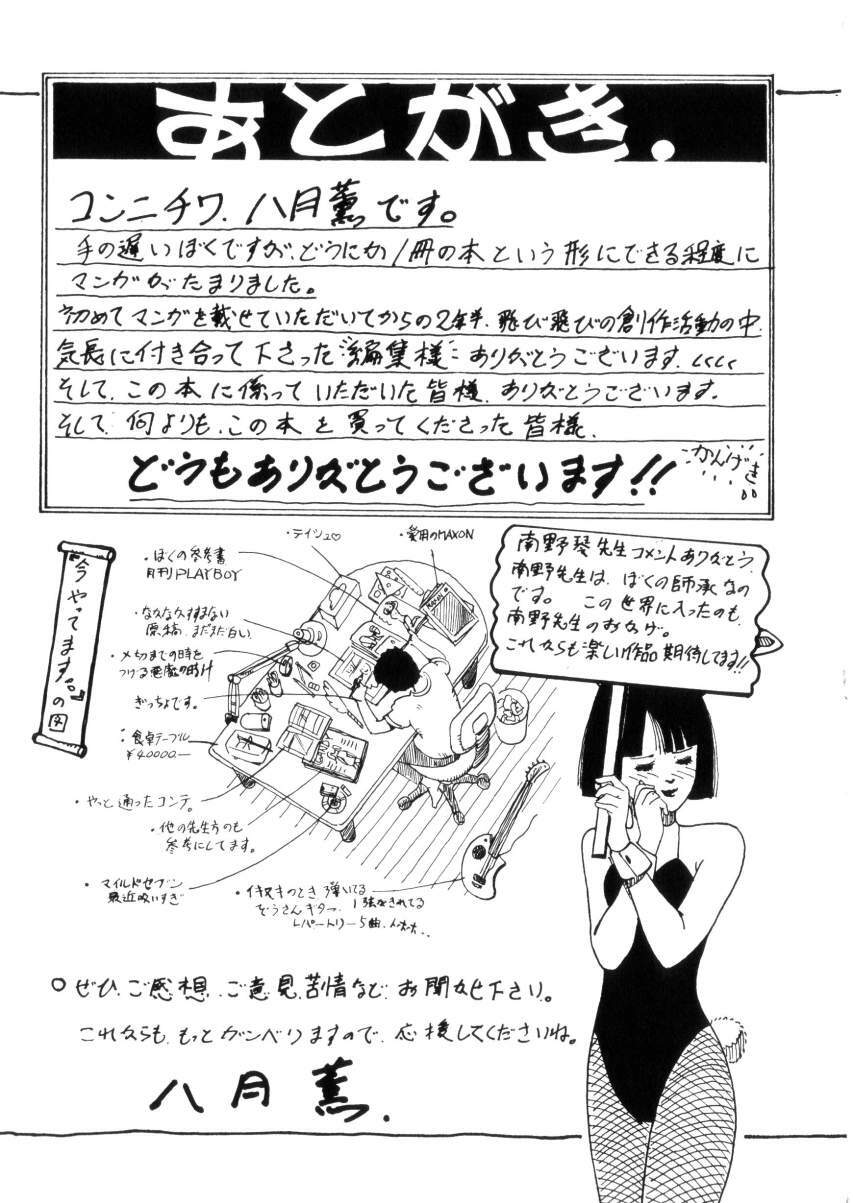 あとがき.
コンニチワ、八月薫です。
手の遅いぼくですが、どうにか1冊の本という形にできる程度に
マンガがたまりました。
初めてマンガを載せていただいてからの2年半、飛び飛びの創作活動の中、
気長に付き合って下さった編集様ありがとうございます、くくくく
そして、この本に係っていただいた皆様、ありがとうございます。
そして、何よりも、この本を買ってくださった皆様、
どうもありがとうございます!!
かんげき
南野琴先生コメントありがとう、
南野先生は、ぼくの師承なの
です。この世界に入ったのも、
南野先生のおかげ。
これからも楽しい作品期待してます!!
『今やってます。』の図
・テイシュ♡
・愛用のMAXON
・ぼくの参考書
月刊PLAYBOY
・なかなかすすまない
原稿、まだまだ白い、
・〆切までの時を
つげる悪魔の時計
ぎっちょです。
・食卓テーブル
¥40000―
・やっと通ったコンテ。
・他の先生方のも
参考にしてます。
・マイルドセブン
最近吸いすぎ
・イキヌキのとき弾いてる
ぞうさんギター、1弦がきれてる
レパートリー5曲、
○ぜひ、ご感想、ご意見、苦情など、お聞かせ下さい。
これからも、もっとガンバりますので、応援してくださいね。
八月薫.